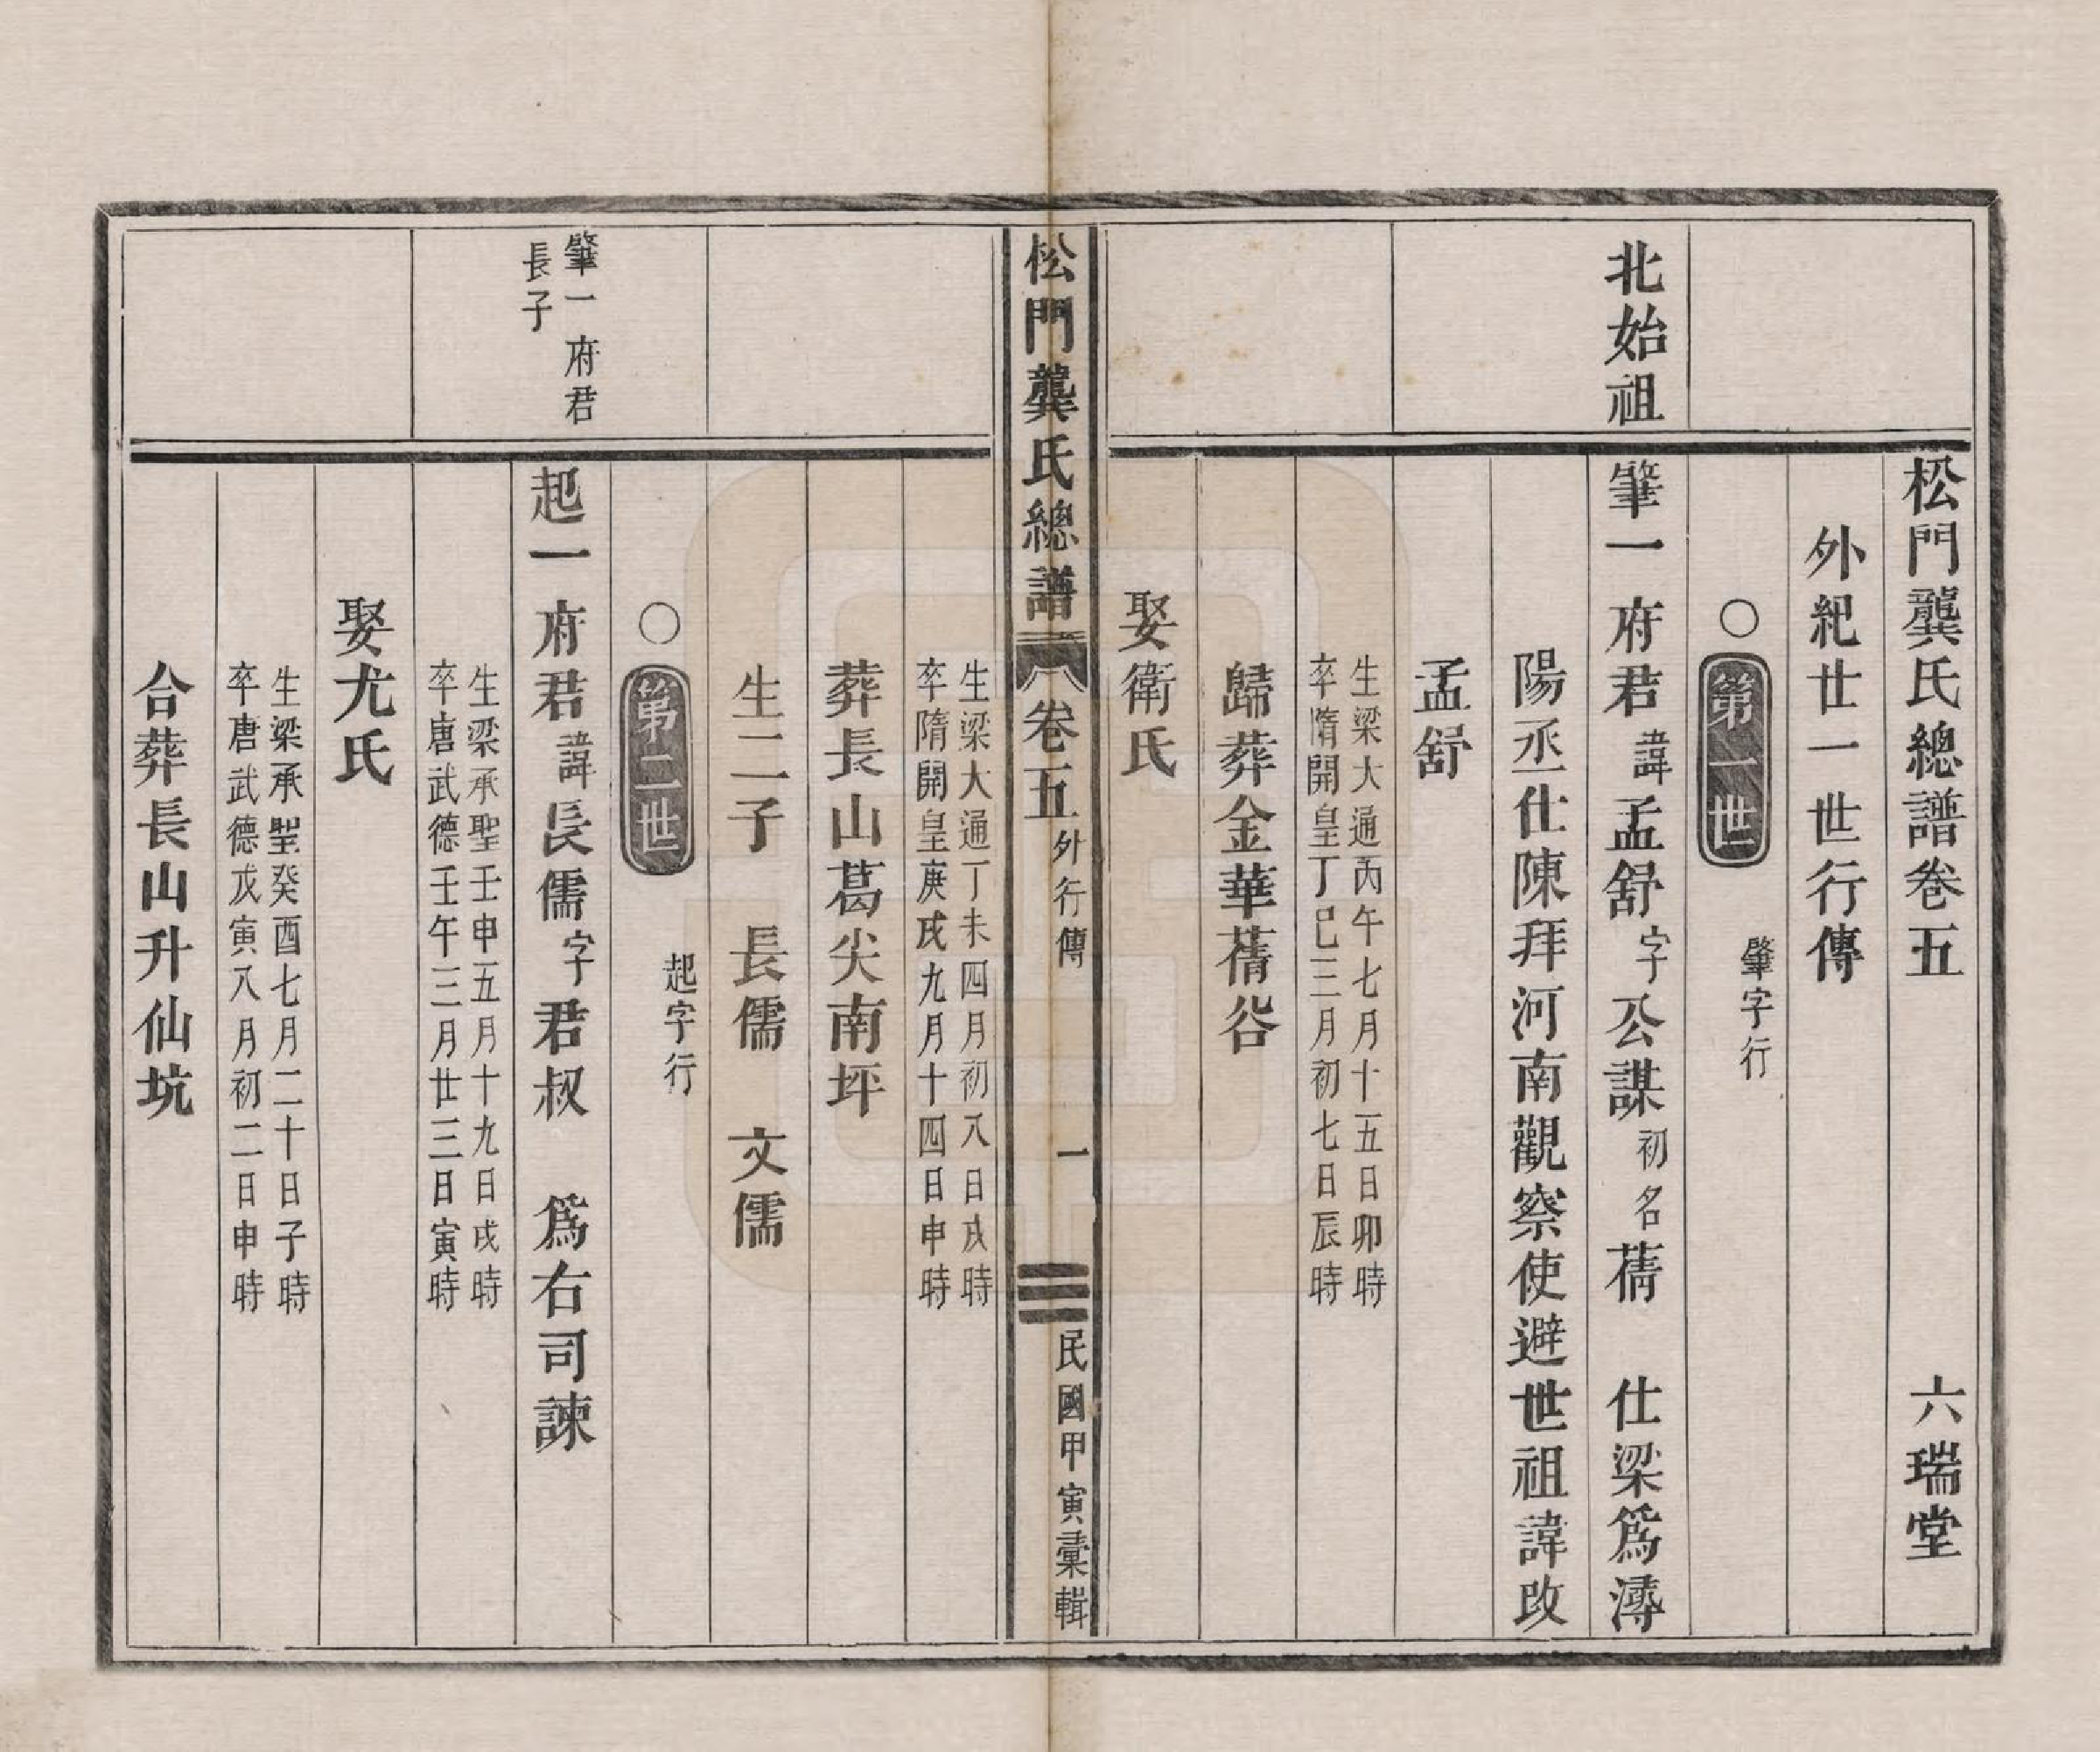 松門龔氏總譜卷五　六瑞堂
外紀廿一世行傳
○第一世　肇字行
北始祖
肇一府君諱孟舒字公謀初名蒨　仕梁爲潯
陽丞仕陳拜河南觀察使避世祖諱改
孟舒
生梁大通丙午七月十五日卯時
卒隋開皇丁巳三月初七日辰時
歸葬金華蒨谷
娶衛氏
松門龔氏總譜　卷五　外行傳　一　民國甲寅彙輯
生梁大通丁未四月初八日戌時
卒隋開皇庚戌九月十四日申時
葬長山葛尖南坪
生二子　長儒　文儒
○第二世　起字行
肇一府君
長子
起一府君諱長儒字君叔　爲右司諫
生梁承聖壬申五月十九日戌時
卒唐武德壬午三月廿三日寅時
娶尤氏
生梁承聖癸酉七月二十日子時
卒唐武德戊寅八月初二日申時
合葬長山升仙坑